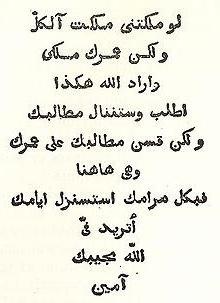 لو ملكتني ملكت الكل
ولكن عمرك ملكي
واراد الله هكذا
اطلب وستنال مطالبك
ولكن قس مطالبك على عمرك
وهي هاهنا
فبكل مرامك استنزل ايامك
أتريد في
الله مجيبك
آمين